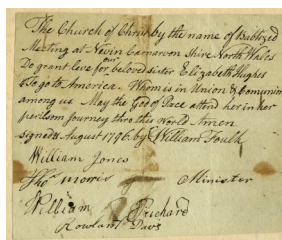 The Church of Christ by the name of Babtized
Meeting at Nevin Carnarvon shire North Wales
Do grant leve for our beloved sister Elizabeth Hughes
To go to America. Whom is in Union & Comunion
among us May the God of Peace attend her in her
perilsom journey thro this world Amen
signed August 1796 by William Foulk
William Jones
Thos morris Minister
William Prichard
Rowland Davis